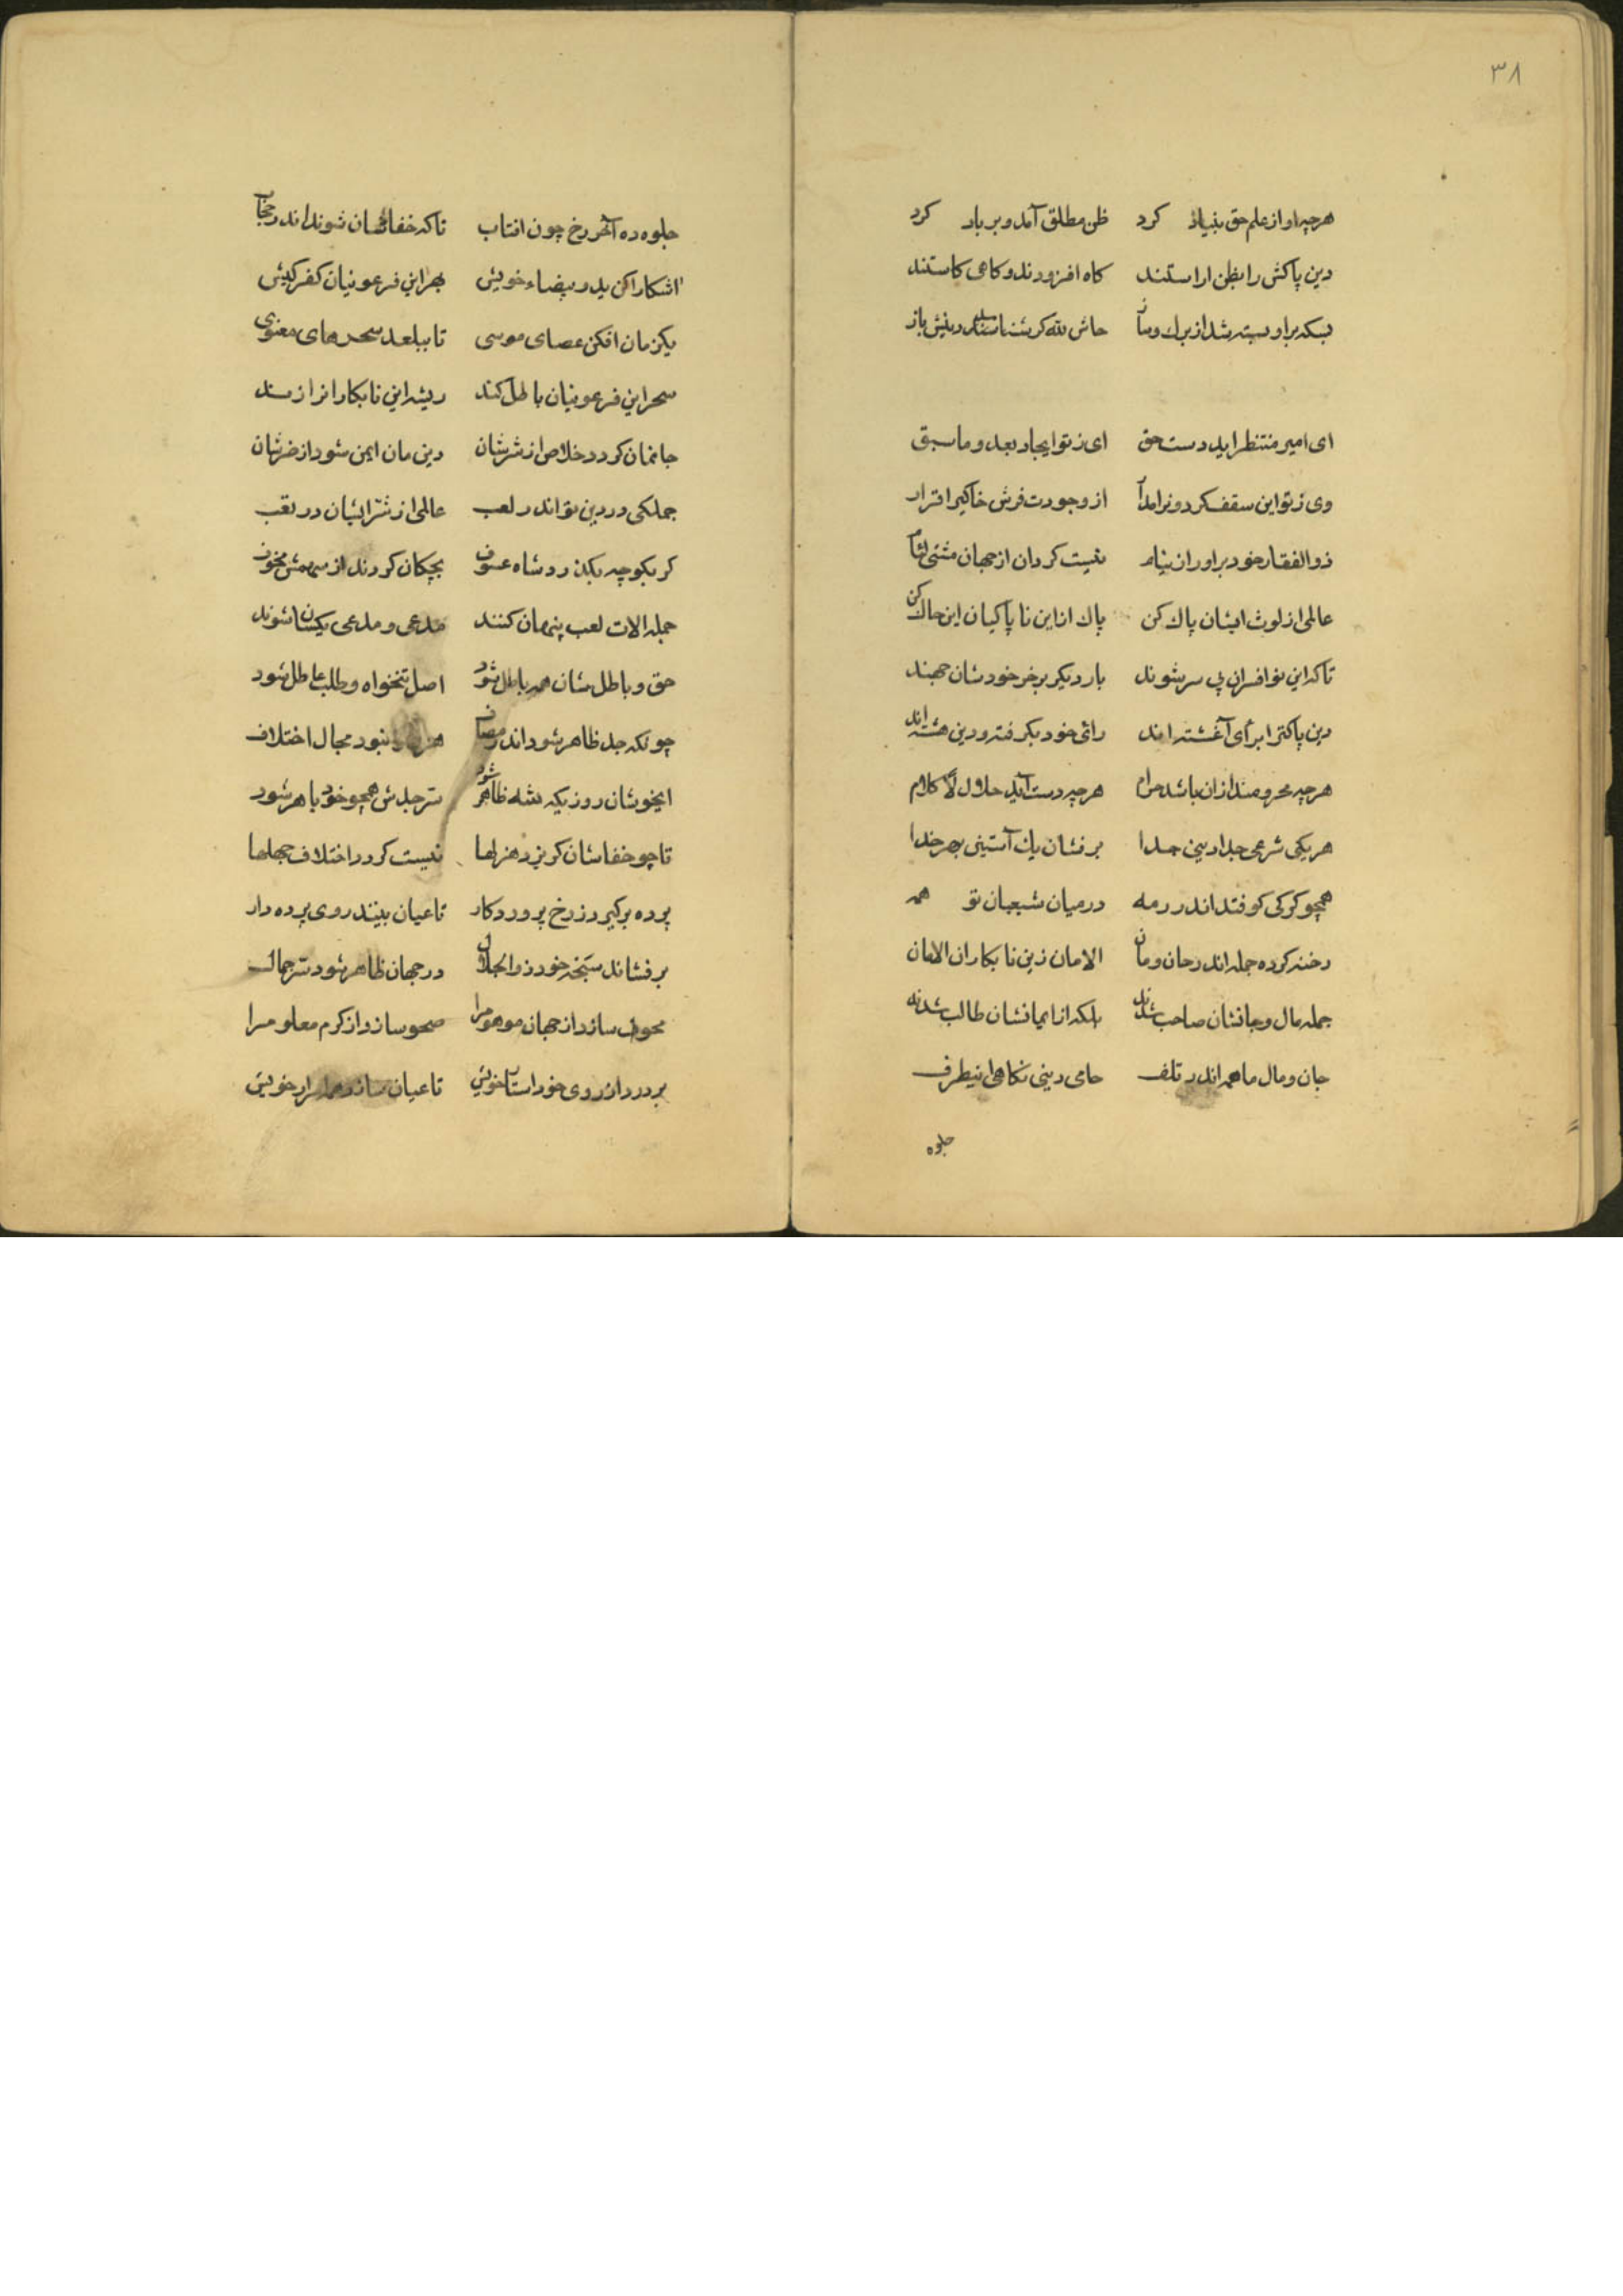 ۳۸
هرچه او از علم حق بنیاد کرد ظن مطلق آمد و بر باد کرد
دین پاکش را بظن اراستند کاه افزودند و کاهی کاستند
بسکه بر او بسته شد از برك و ساز حاش لله کر شناسند دینش باز
ای امیر منتظر ای دست حق ای ز تو ایجاد بعد و ما سبق
وی ز تو این سقف کردون را مدار از وجودت فرش خاکی را قرار
ذوالفقار خود براور از نیام نیست کردان از جهان مشتی لئام
عالمی از لوث ایشان پاك کن پاك از این ناپاکیان این خاك کن
تا که این نو افسران بی سر شوند بار دیکر بر خر خود شان جهند
دین پاکت را برأی آغشته اند رائی خود بکرفته و دین هشته اند
هرچه محرومند از ان باشد حرام هرچه دست آید حلال لا کلام
هر یکی شرعی جدا دینی جدا بر فشان یك آستینی بهر خدا
همچو کرکی کو فتد اندر رمه در میان شیعیان تو همه
رخنه کرده جمله اندر جان و مان الامان زین نابکاران الامان
جمله مال و جانشان صاحب شدند بلکه از ایمانشان طالب شدند
جان و مال ما همه اندر تلف حامی دینی نکاهی اینطرف
جلوه
جلوه ده آخر رخ چون افتاب تا که خفاشان شوند اندر حجاب
اشکارا کن ید و بیضاء خویش بهر این فرعونیان کفر کیش
یکزمان افکن عصای موسی تا ببلعد سحرهای معنوی
سحر این فرعونیان باطل کند ریشه این نابکارانرا ز
جانمان کردد خلاص از شرشان دین مان ایمن شود از ضرشان
جملکی در دین تو اندر لعب عالمی از شر ایشان در تعب
کر بکوچه بکذرد شاه عسوف بچکان کردند از سهمش مخوف
جمله الات لعب پنهان کنند مدعی و مدعی یکسان شوند
حق و باطل شان همه باطل شود اصل تنخواه و طلب عاطل شود
چونکه جد ظاهر شود اندر مصاف نبود مجال اختلاف
ایخوشان روزیکه شه ظاهر شود سر جدش همچو خود باهر شود
تا چو خفاشان کریزد هزلها نیست کردد اختلاف جهلها
پرده برکیرد ز رخ پروردکار تا عیان بینند روی پرده دار
بر فشاند سبحه خود ذوالجلال در جهان ظاهر شود سر جمال
محو سازد از جهان موهوم را صحو سازد از کرم معلوم را
بردرد از روی خود استار خویش تا عیان سازد همه اسرار خویش